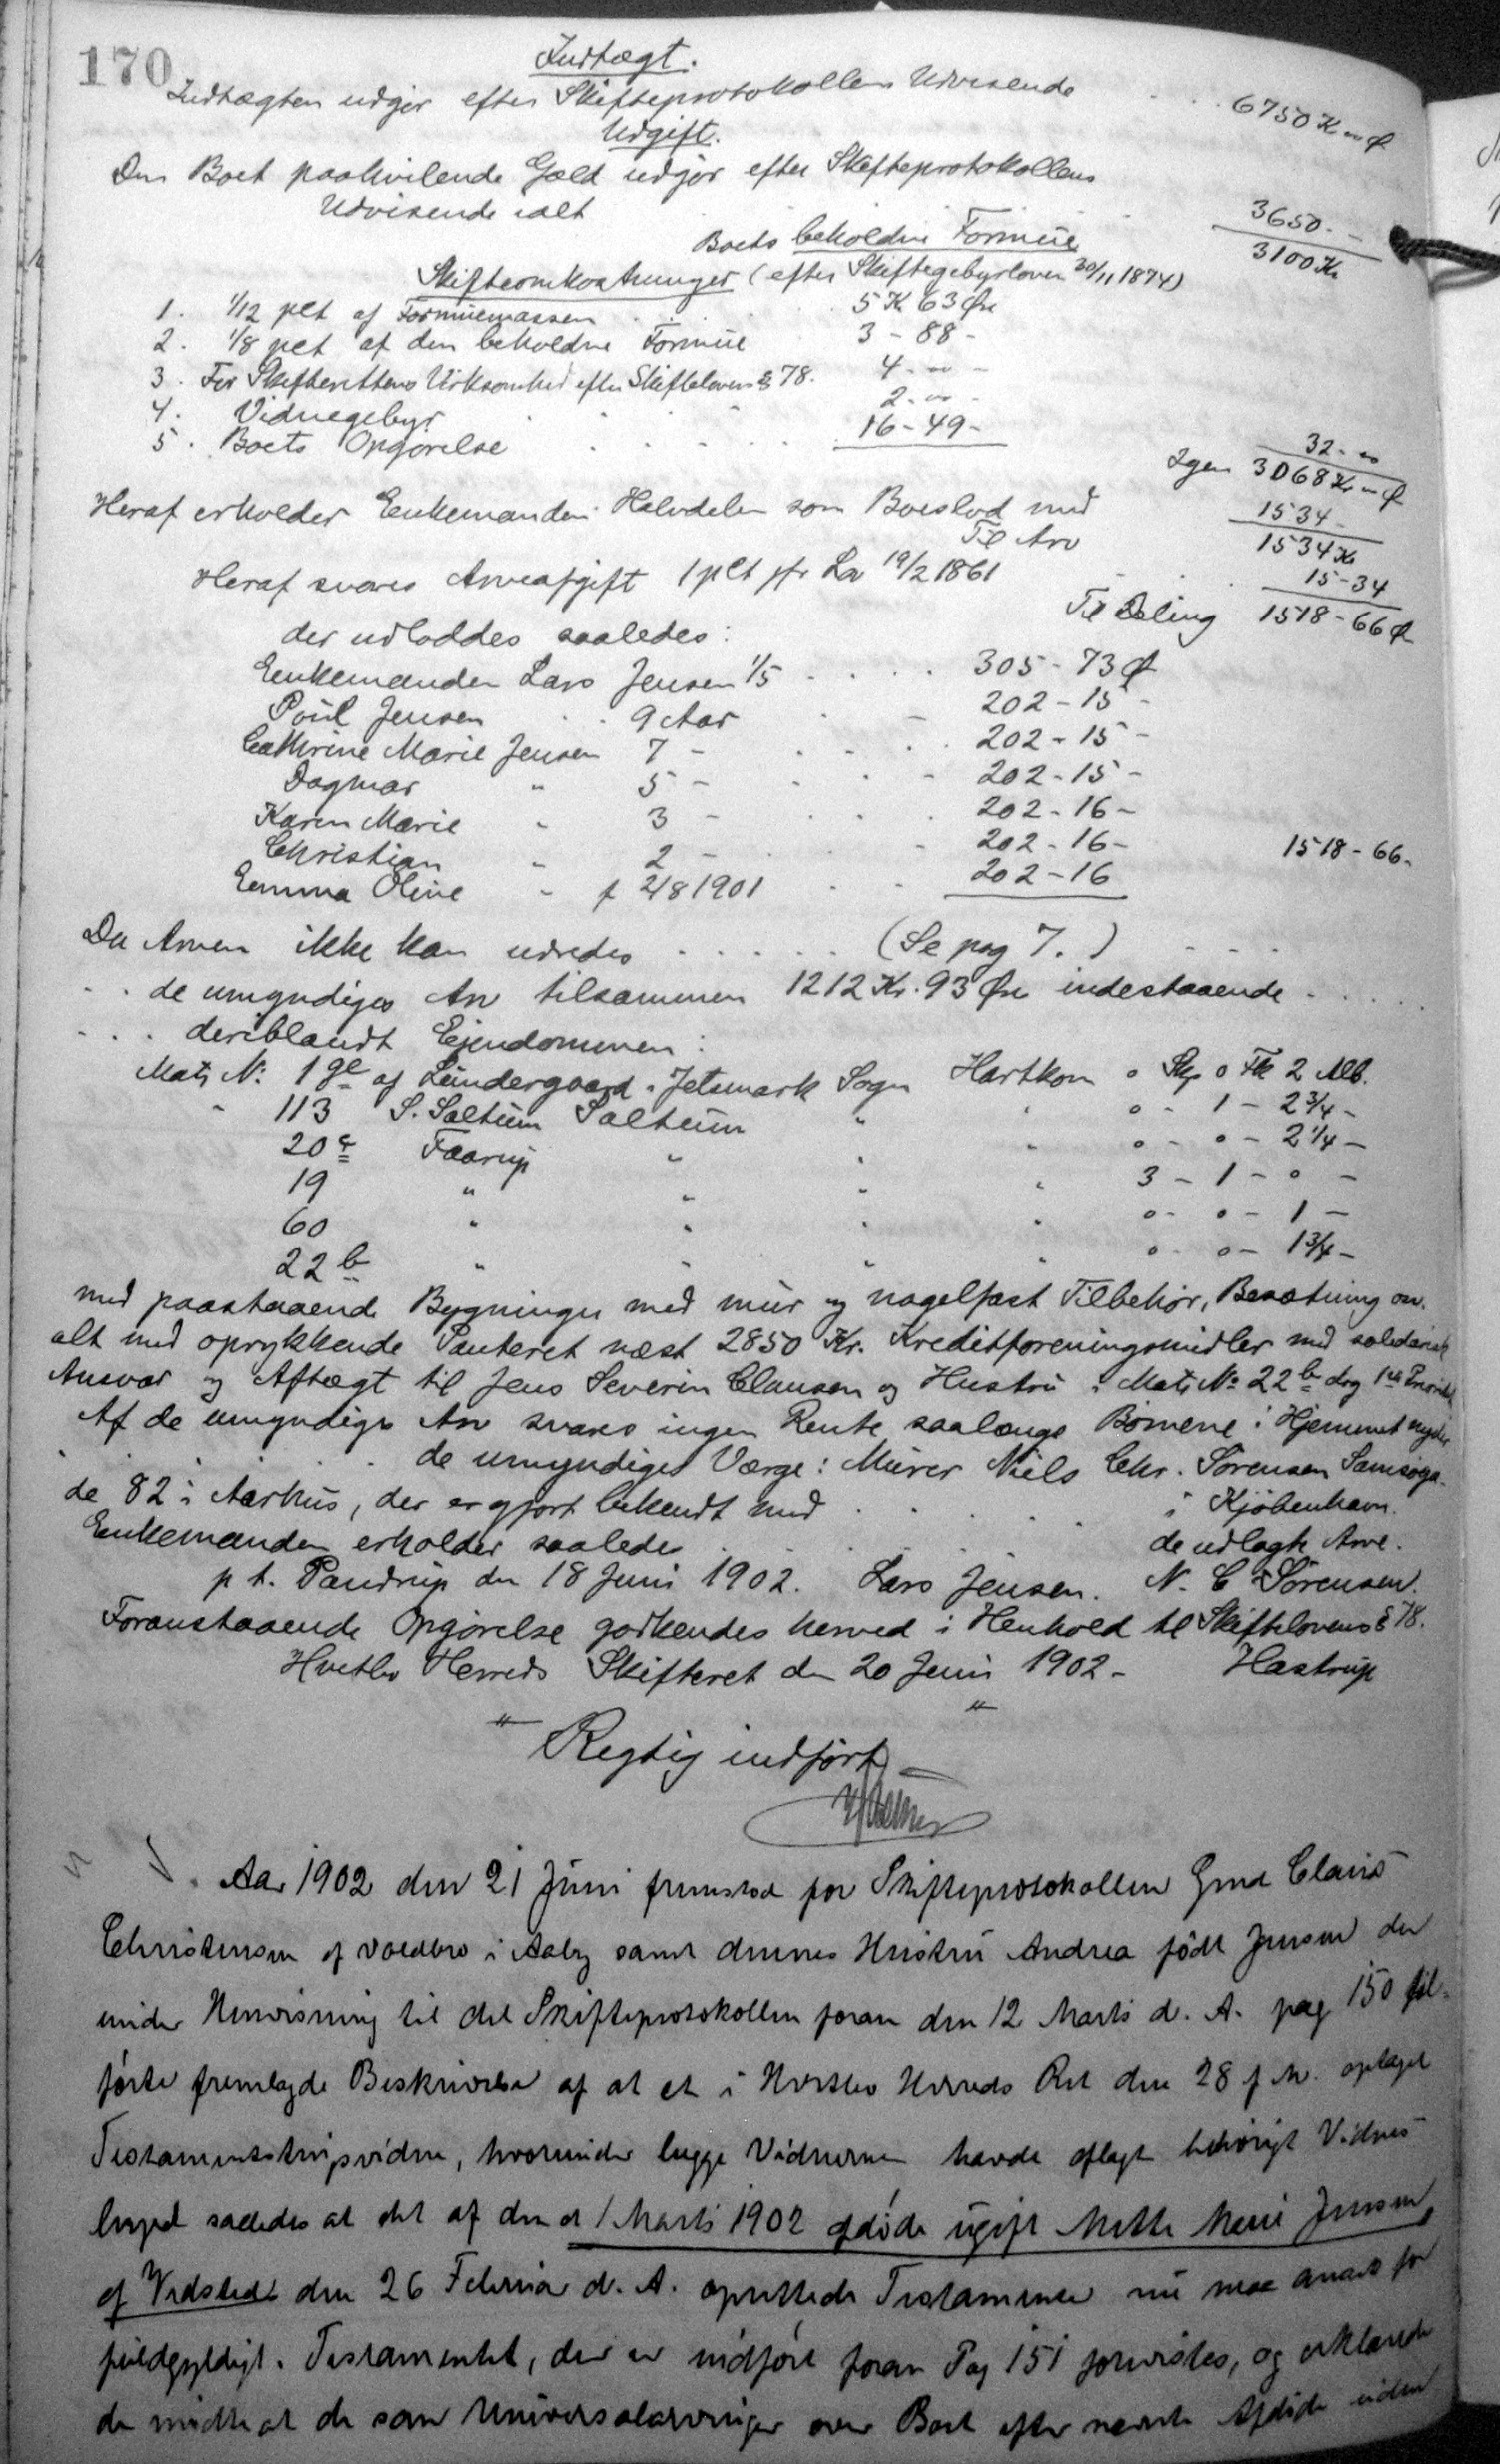 170
Indtægt.
Indtægten udgjør efter Skifteprotokollens Udvisende . . . 6750 Kr " Ø
Udgift.
Den Boet paahvilende Gæld udgjør efter Skifteprotokollens
Udvisende ialt 3650 - -
Boets beholdne Formue 3100 Kr
Skifteomkostninger (efter Skiftegebyrloven 30/11 1874)
1. 1/12 pct af Formuemassen . . . 5 K 63 Øre
2. 1/8 pct af den beholdne Formue 3 - 88 -
3. For Skifterettens Virksomhed efter Skiftelovens § 78. 4 - " -
4. Vidnegebyr 2 - " -
5. Boets Opgjørelse . . . . . 16 - 49 - 32 - "
Igen 3068 Kr " Ø
Heraf erholder Enkemanden Halvdelen som Boeslod med 1534 -
Til Arv 1534 Kr
Heraf svares Arveafgift 1 pct jfr Lov 19/2 1861 . . . 15 - 34
Til Deling 1518 - 66 Ø
der udloddes saaledes:
Enkemanden Lars Jensen 1/5 . . . . 305 - 73 Ø
Poul Jensen . . 9 Aar . - 202 - 15 -
Cathrine Marie Jensen 7 - . . . . 202 - 15 -
Dagmar " 5 - . . - 202 - 15 -
Karen Marie " 3 - . . . 202 - 16 -
Christian " 2 - . . - 202 - 16 - 1518 - 66 -
Emma Oline " f 2/8 1901 . . 202 - 16
Da Arven ikke kan udredes . . . . . (Se pag 7.) - - -
. . de umyndiges Arv tilsammen 1212 Kr. 93 Øre indestaaende . . .
. . . deriblandt Ejendommen:
Matr No 1 ge af Lundergaard i Jetsmark Sogn Hartkorn 0 Skp 0 Fk 2 Alb.
" 113 S. Saltum Saltum " " 0 - 1 - 2 3/4 -
20 c Faarup " " " 0 - 0 - 2 1/4 -
19 " " " " 3 - 1 - 0 -
60 " " " " 0 - 0 - 1 -
22 b " " " " 0 - 0 - 1 3/4 -
med paastaaende Bygninger med mur og nagelfast Tilbehør, Besætning osv.
alt med oprykkende Panteret næst 2850 Kr. Kreditforeningsmidler med solidarisk
Ansvar og Aftægt til Jens Severin Clausen og Hustru i Matr No 22 b dog 1ste Priorit
Af de umyndiges Arv svares ingen Rente saalænge Børnene i Hjemmet nyder
. . . de umyndiges Værge: Murer Niels Chr. Sørensen Samsøga-
de 82 i Aarhus, der er gjort bekendt med . . . . i Kjøbenhavn.
Enkemanden erholder saaledes . . . . . de udlagte Arve.
p t. Pandrup den 18 Juni 1902. Lars Jensen. N. C Sørensen.
Foranstaaende Opgjørelse godkendes herved i Henhold til Skiftelovens § 78.
Hvetbo Herreds Skifteret den 20 Juni 1902 - Hastrup
" "
Rigtig indført
Aar 1902 den 21 Juni fremstod for Skifteprotokollen Gmd Claus
Christensen af Voldbro i Aaby samt dennes Hustru Andrea født Jensen der
under Henvisning til det Skifteprotokollen foran den 12 Marts d. A. pag 150 til-
førte fremlagde Beskrivelse af at et i Hvetbo Herreds Ret den 28 f. M. optaget
Testamentsthingsvidne, hvorunder begge Vidnerne havde aflagt behørigt Vidnes-
byrd saaledes at det af den d 1 Marts 1902 afdøde ugift Mette Marie Jensen
af Vedsted den 26 Februar d. A. oprettede Testamente nu maa anses for
fuldgyldigt. Testamentet, der er indført foran Pag 151 forevistes, og erklærede
de mødte at de som Universalarvinger over Boet efter nævnte Afdøde uden